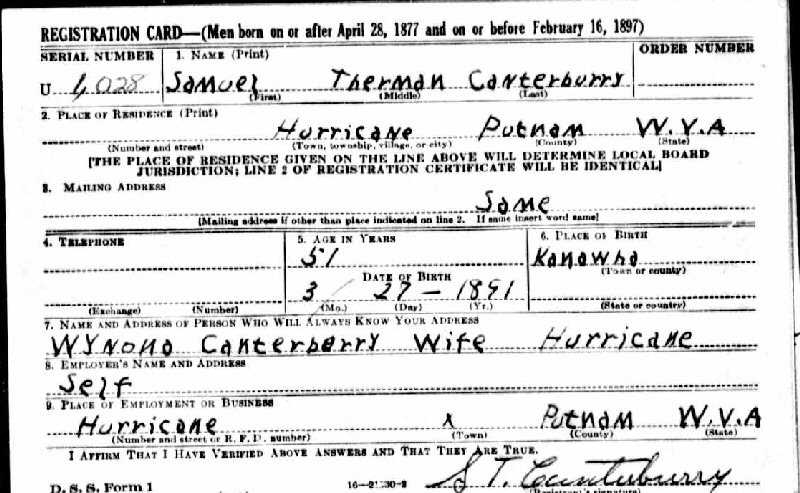 REGISTRATION CARD—(Men born on or after April 28, 1877 and on or before February 16, 1897)
SERIAL NUMBER 1. NAME (Print) ORDER NUMBER
U 1,028 Samuel Therman Canterburry
(First) (Middle) (Last)
2. PLACE OF RESIDENCE (Print)
Hurricane Putnam W.V.A
(Number and street) (Town, township, village, or city) (County) (State)
[THE PLACE OF RESIDENCE GIVEN ON THE LINE ABOVE WILL DETERMINE LOCAL BOARD
JURISDICTION; LINE 2 OF REGISTRATION CERTIFICATE WILL BE IDENTICAL]
3. MAILING ADDRESS
Same
[Mailing address if other than place indicated on line 2. If same insert word same]
4. TELEPHONE 5. AGE IN YEARS 6. PLACE OF BIRTH
51 Kanawha
DATE OF BIRTH (Town or county)
3 27 — 1891
(Exchange) (Number) (Mo.) (Day) (Yr.) (State or country)
7. NAME AND ADDRESS OF PERSON WHO WILL ALWAYS KNOW YOUR ADDRESS
Wynona Canterberry Wife Hurricane
8. EMPLOYER'S NAME AND ADDRESS
Self
9. PLACE OF EMPLOYMENT OR BUSINESS
Hurricane x Putnam W.V.A
(Number and street or R. F. D. number) (Town) (County) (State)
I AFFIRM THAT I HAVE VERIFIED ABOVE ANSWERS AND THAT THEY ARE TRUE.
D. S. S. Form 1 S T. Canterburry
(Registrant's signature)